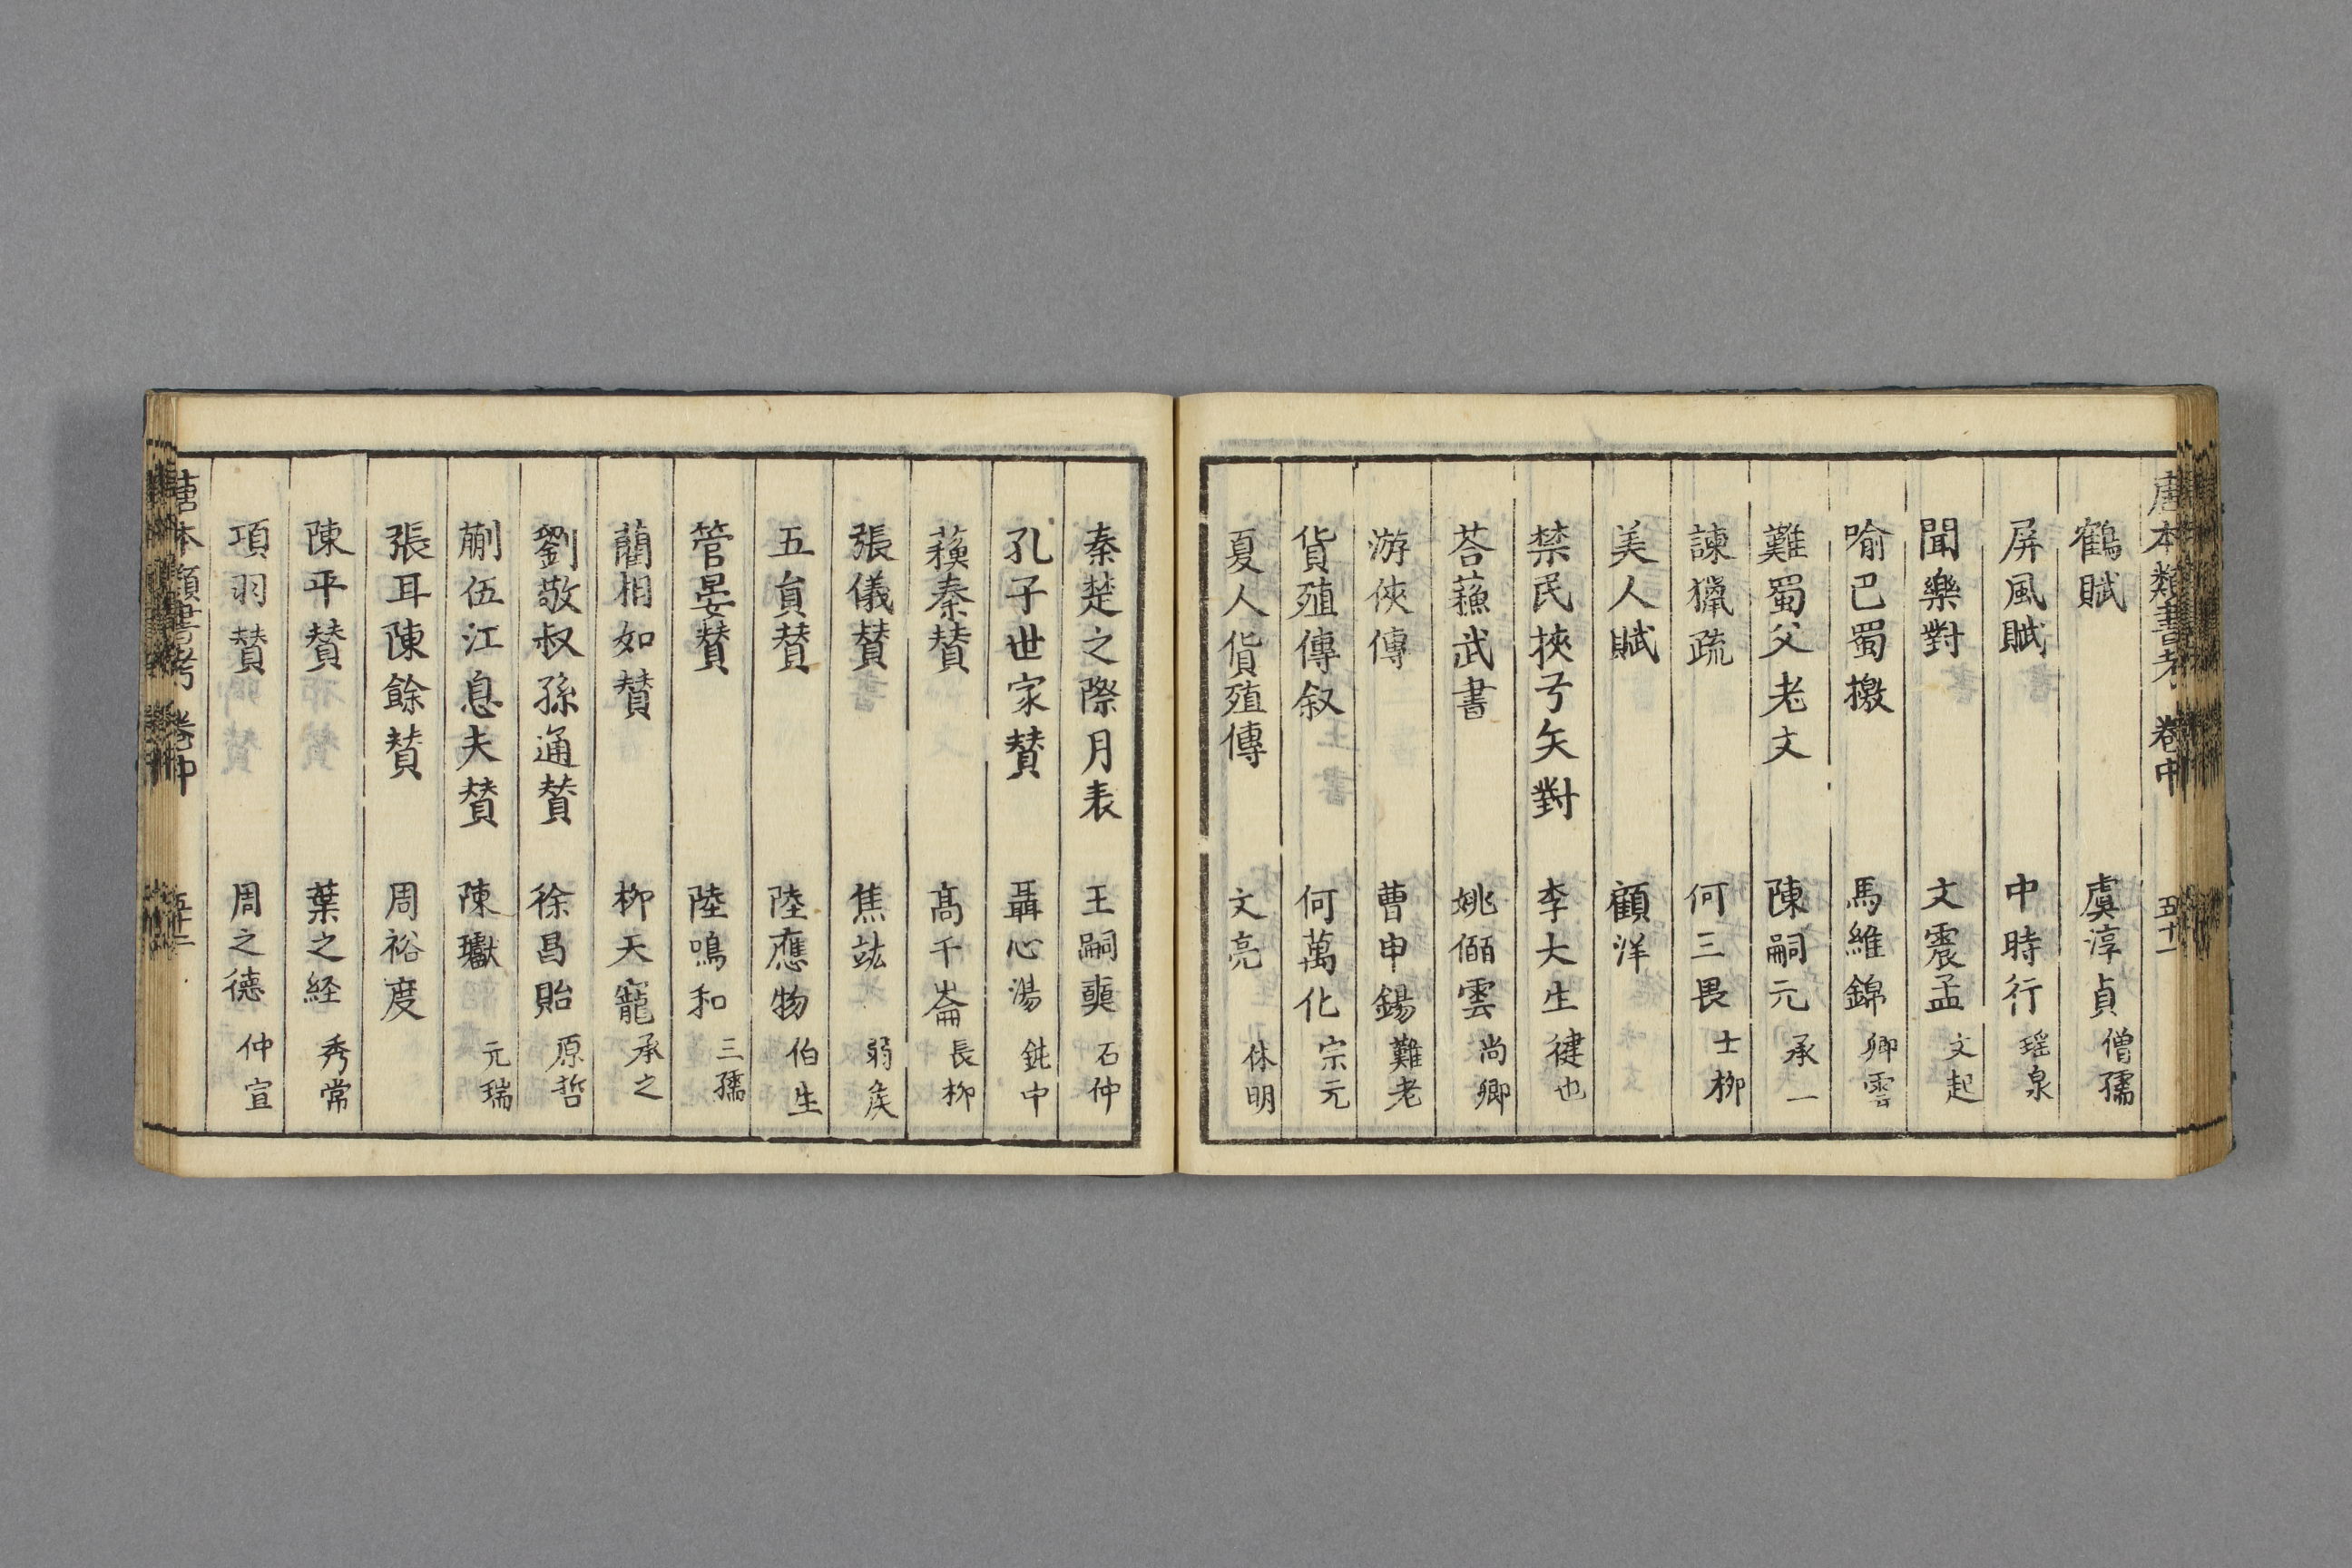 唐本類書考 卷中 五十一
鶴賦 虞淳貞 僧孺
屏風賦 中時行 瑶泉
聞樂對 文震孟 文起
喻巴蜀檄 馬維錦 卿雲
難蜀父老文 陳嗣元 承一
諫獵疏 何三畏 士栁
美人賦 顧洋
禁民挾弓矢對 李大生 健也
荅蘓武書 姚偭雲 尚卿
游俠傳 曹申錫 難老
貨殖傳叙 何萬化 宗元
夏人貨殖傳 文亮 休明
秦楚之際月表 王嗣奭 石仲
孔子世家賛 聶心湯 鈍中
蘓秦賛 髙千崙 長栁
張儀賛 焦竑 弱矦
五貟賛 陸應物 伯生
管晏賛 陸鳴和 三孺
藺相如賛 栁天寵 承之
劉敬叔孫通賛 徐昌貽 原哲
蒯伍江息夫賛 陳瓛 元瑞
張耳陳餘賛 周裕度
陳平賛 葉之経 秀常
項羽賛 周之德 仲宣
唐本類書考 卷中 五十二